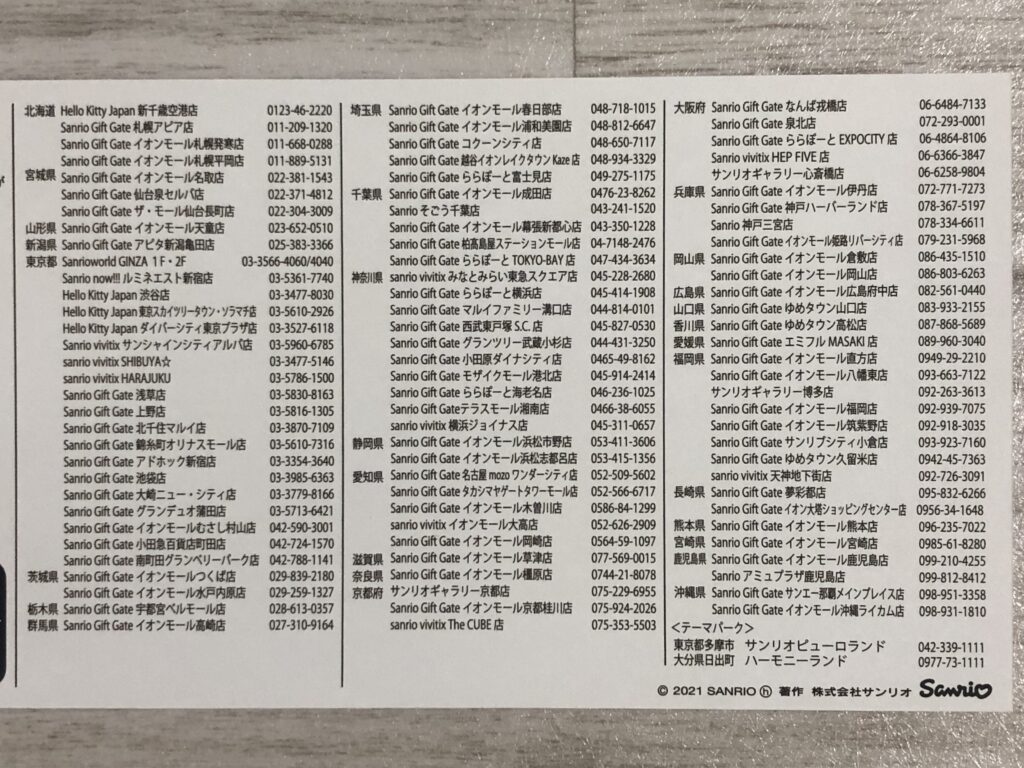 北海道 Hello Kitty Japan 新千歳空港店 0123-46-2220
Sanrio Gift Gate 札幌アピア店 011-209-1320
Sanrio Gift Gate イオンモール札幌発寒店 011-668-0288
Sanrio Gift Gate イオンモール札幌平岡店 011-889-5131
宮城県 Sanrio Gift Gate イオンモール名取店 022-381-1543
Sanrio Gift Gate 仙台泉セルバ店 022-371-4812
Sanrio Gift Gate ザ・モール仙台長町店 022-304-3009
山形県 Sanrio Gift Gate イオンモール天童店 023-652-0510
新潟県 Sanrio Gift Gate アピタ新潟亀田店 025-383-3366
東京都 Sanrioworld GINZA 1F・2F 03-3566-4060/4040
Sanrio now!!! ルミネエスト新宿店 03-5361-7740
Hello Kitty Japan 渋谷店 03-3477-8030
Hello Kitty Japan 東京スカイツリータウン・ソラマチ店 03-5610-2926
Hello Kitty Japan ダイバーシティ東京プラザ店 03-3527-6118
Sanrio vivitix サンシャインシティアルパ店 03-5960-6785
sanrio vivitix SHIBUYA☆ 03-3477-5146
sanrio vivitix HARAJUKU 03-5786-1500
Sanrio Gift Gate 浅草店 03-5830-8163
Sanrio Gift Gate 上野店 03-5816-1305
Sanrio Gift Gate 北千住マルイ店 03-3870-7109
Sanrio Gift Gate 錦糸町オリナスモール店 03-5610-7316
Sanrio Gift Gate アドホック新宿店 03-3354-3640
Sanrio Gift Gate 池袋店 03-3985-6363
Sanrio Gift Gate 大崎ニュー・シティ店 03-3779-8166
Sanrio Gift Gate グランデュオ蒲田店 03-5713-6421
Sanrio Gift Gate イオンモールむさし村山店 042-590-3001
Sanrio Gift Gate 小田急百貨店町田店 042-724-1570
Sanrio Gift Gate 南町田グランベリーパーク店 042-788-1141
茨城県 Sanrio Gift Gate イオンモールつくば店 029-839-2180
Sanrio Gift Gate イオンモール水戸内原店 029-259-1327
栃木県 Sanrio Gift Gate 宇都宮ベルモール店 028-613-0357
群馬県 Sanrio Gift Gate イオンモール高崎店 027-310-9164
埼玉県 Sanrio Gift Gate イオンモール春日部店 048-718-1015
Sanrio Gift Gate イオンモール浦和美園店 048-812-6647
Sanrio Gift Gate コクーンシティ店 048-650-7117
Sanrio Gift Gate 越谷イオンレイクタウン Kaze 店 048-934-3329
Sanrio Gift Gate ららぽーと富士見店 049-275-1175
千葉県 Sanrio Gift Gate イオンモール成田店 0476-23-8262
Sanrio そごう千葉店 043-241-1520
Sanrio Gift Gate イオンモール幕張新都心店 043-350-1228
Sanrio Gift Gate 柏高島屋ステーションモール店 04-7148-2476
Sanrio Gift Gate ららぽーと TOKYO-BAY 店 047-434-3634
神奈川県 sanrio vivitix みなとみらい東急スクエア店 045-228-2680
Sanrio Gift Gate ららぽーと横浜店 045-414-1908
Sanrio Gift Gate マルイファミリー溝口店 044-814-0101
Sanrio Gift Gate 西武東戸塚 S.C. 店 045-827-0530
Sanrio Gift Gate グランツリー武蔵小杉店 044-431-3250
Sanrio Gift Gate 小田原ダイナシティ店 0465-49-8162
Sanrio Gift Gate モザイクモール港北店 045-914-2414
Sanrio Gift Gate ららぽーと海老名店 046-236-1025
Sanrio Gift Gateテラスモール湘南店 0466-38-6055
sanrio vivitix 横浜ジョイナス店 045-311-0657
静岡県 Sanrio Gift Gate イオンモール浜松市野店 053-411-3606
Sanrio Gift Gate イオンモール浜松志都呂店 053-415-1356
愛知県 Sanrio Gift Gate 名古屋 mozo ワンダーシティ店 052-509-5602
Sanrio Gift Gate タカシマヤゲートタワーモール店 052-566-6717
Sanrio Gift Gate イオンモール木曽川店 0586-84-1299
sanrio vivitix イオンモール大高店 052-626-2909
Sanrio Gift Gate イオンモール岡崎店 0564-59-1097
滋賀県 Sanrio Gift Gate イオンモール草津店 077-569-0015
奈良県 Sanrio Gift Gate イオンモール橿原店 0744-21-8078
京都府 サンリオギャラリー京都店 075-229-6955
Sanrio Gift Gate イオンモール京都桂川店 075-924-2026
sanrio vivitix The CUBE 店 075-353-5503
大阪府 Sanrio Gift Gate なんば戎橋店 06-6484-7133
Sanrio Gift Gate 泉北店 072-293-0001
Sanrio Gift Gate ららぽーと EXPOCITY 店 06-4864-8106
Sanrio vivitix HEP FIVE 店 06-6366-3847
サンリオギャラリー心斎橋店 06-6258-9804
兵庫県 Sanrio Gift Gate イオンモール伊丹店 072-771-7273
Sanrio Gift Gate 神戸ハーバーランド店 078-367-5197
Sanrio 神戸三宮店 078-334-6611
Sanrio Gift Gate イオンモール姫路リバーシティ店 079-231-5968
岡山県 Sanrio Gift Gate イオンモール倉敷店 086-435-1510
Sanrio Gift Gate イオンモール岡山店 086-803-6263
広島県 Sanrio Gift Gate イオンモール広島府中店 082-561-0440
山口県 Sanrio Gift Gate ゆめタウン山口店 083-933-2155
香川県 Sanrio Gift Gate ゆめタウン高松店 087-868-5689
愛媛県 Sanrio Gift Gate エミフル MASAKI 店 089-960-3040
福岡県 Sanrio Gift Gate イオンモール直方店 0949-29-2210
Sanrio Gift Gate イオンモール八幡東店 093-663-7122
サンリオギャラリー博多店 092-263-3613
Sanrio Gift Gate イオンモール福岡店 092-939-7075
Sanrio Gift Gate イオンモール筑紫野店 092-918-3035
Sanrio Gift Gate サンリブシティ小倉店 093-923-7160
Sanrio Gift Gate ゆめタウン久留米店 0942-45-7363
sanrio vivitix 天神地下街店 092-726-3091
長崎県 Sanrio Gift Gate 夢彩都店 095-832-6266
Sanrio Gift Gate イオン大塔ショッピングセンター店 0956-34-1648
熊本県 Sanrio Gift Gate イオンモール熊本店 096-235-7022
宮崎県 Sanrio Gift Gate イオンモール宮崎店 0985-61-8280
鹿児島県 Sanrio Gift Gate イオンモール鹿児島店 099-210-4255
Sanrio アミュプラザ鹿児島店 099-812-8412
沖縄県 Sanrio Gift Gate サンエー那覇メインプレイス店 098-951-3358
Sanrio Gift Gate イオンモール沖縄ライカム店 098-931-1810
＜テーマパーク＞
東京都多摩市 サンリオピューロランド 042-339-1111
大分県日出町 ハーモニーランド 0977-73-1111
© 2021 SANRIO ⓗ 著作 株式会社サンリオ Sanrio